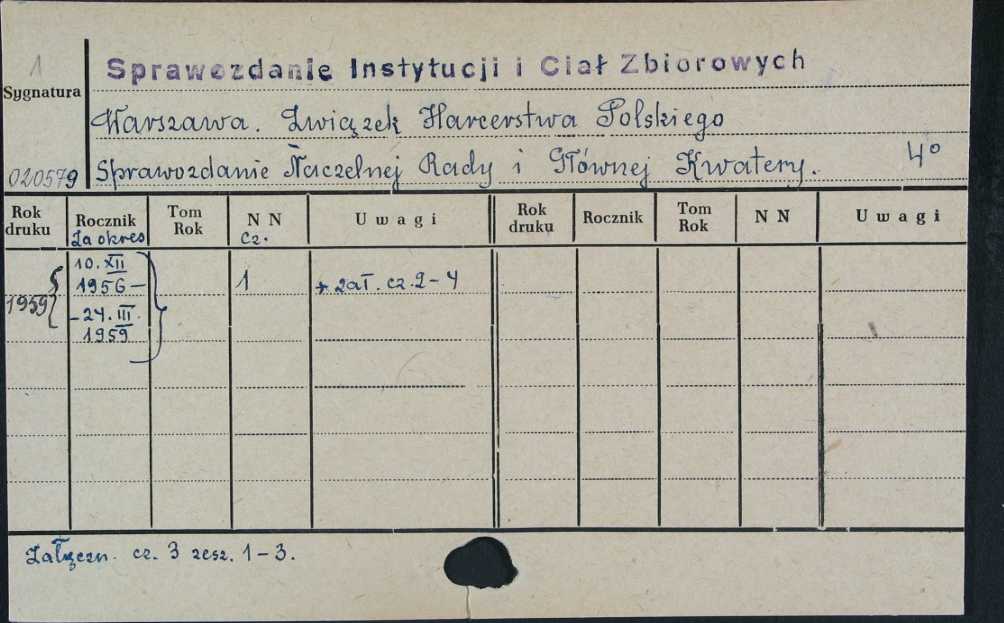 1
Sprawozdanie Instytucji i Ciał Zbiorowych
Sygnatura
Warszawa. Związek Harcerstwa Polskiego
020579
Sprawozdanie Naczelnej Rady i Głównej Kwatery.
4º
Rok druku
Rocznik
Za okres
Tom Rok
N N
Cz.
Uwagi
Rok druku
Rocznik
Tom Rok
N N
Uwagi
1959
10. XII
1956 –
– 24. III.
1959
1
+ zał. cz. 2 – 4
Załączn. cz. 3 zesz. 1 – 3.